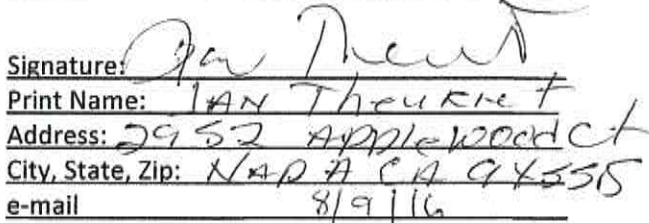 Signature:
Print Name: IAN Theuriet
Address: 2952 Applewood Ct
City, State, Zip: NAPA CA 94558
e-mail 8/9/16